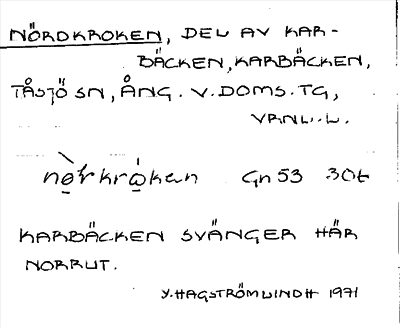 NÖRDKROKEN, DEL AV KAR-
BÄCKEN, KARBÄCKEN,
TÅSJÖ SN, ÅNG. V. DOMS. TG,
VRNL. L.
Gn 53 30t
KARBÄCKEN SVÄNGER HÄR
NORRUT.
Y. HAGSTRÖM LINDH 1971